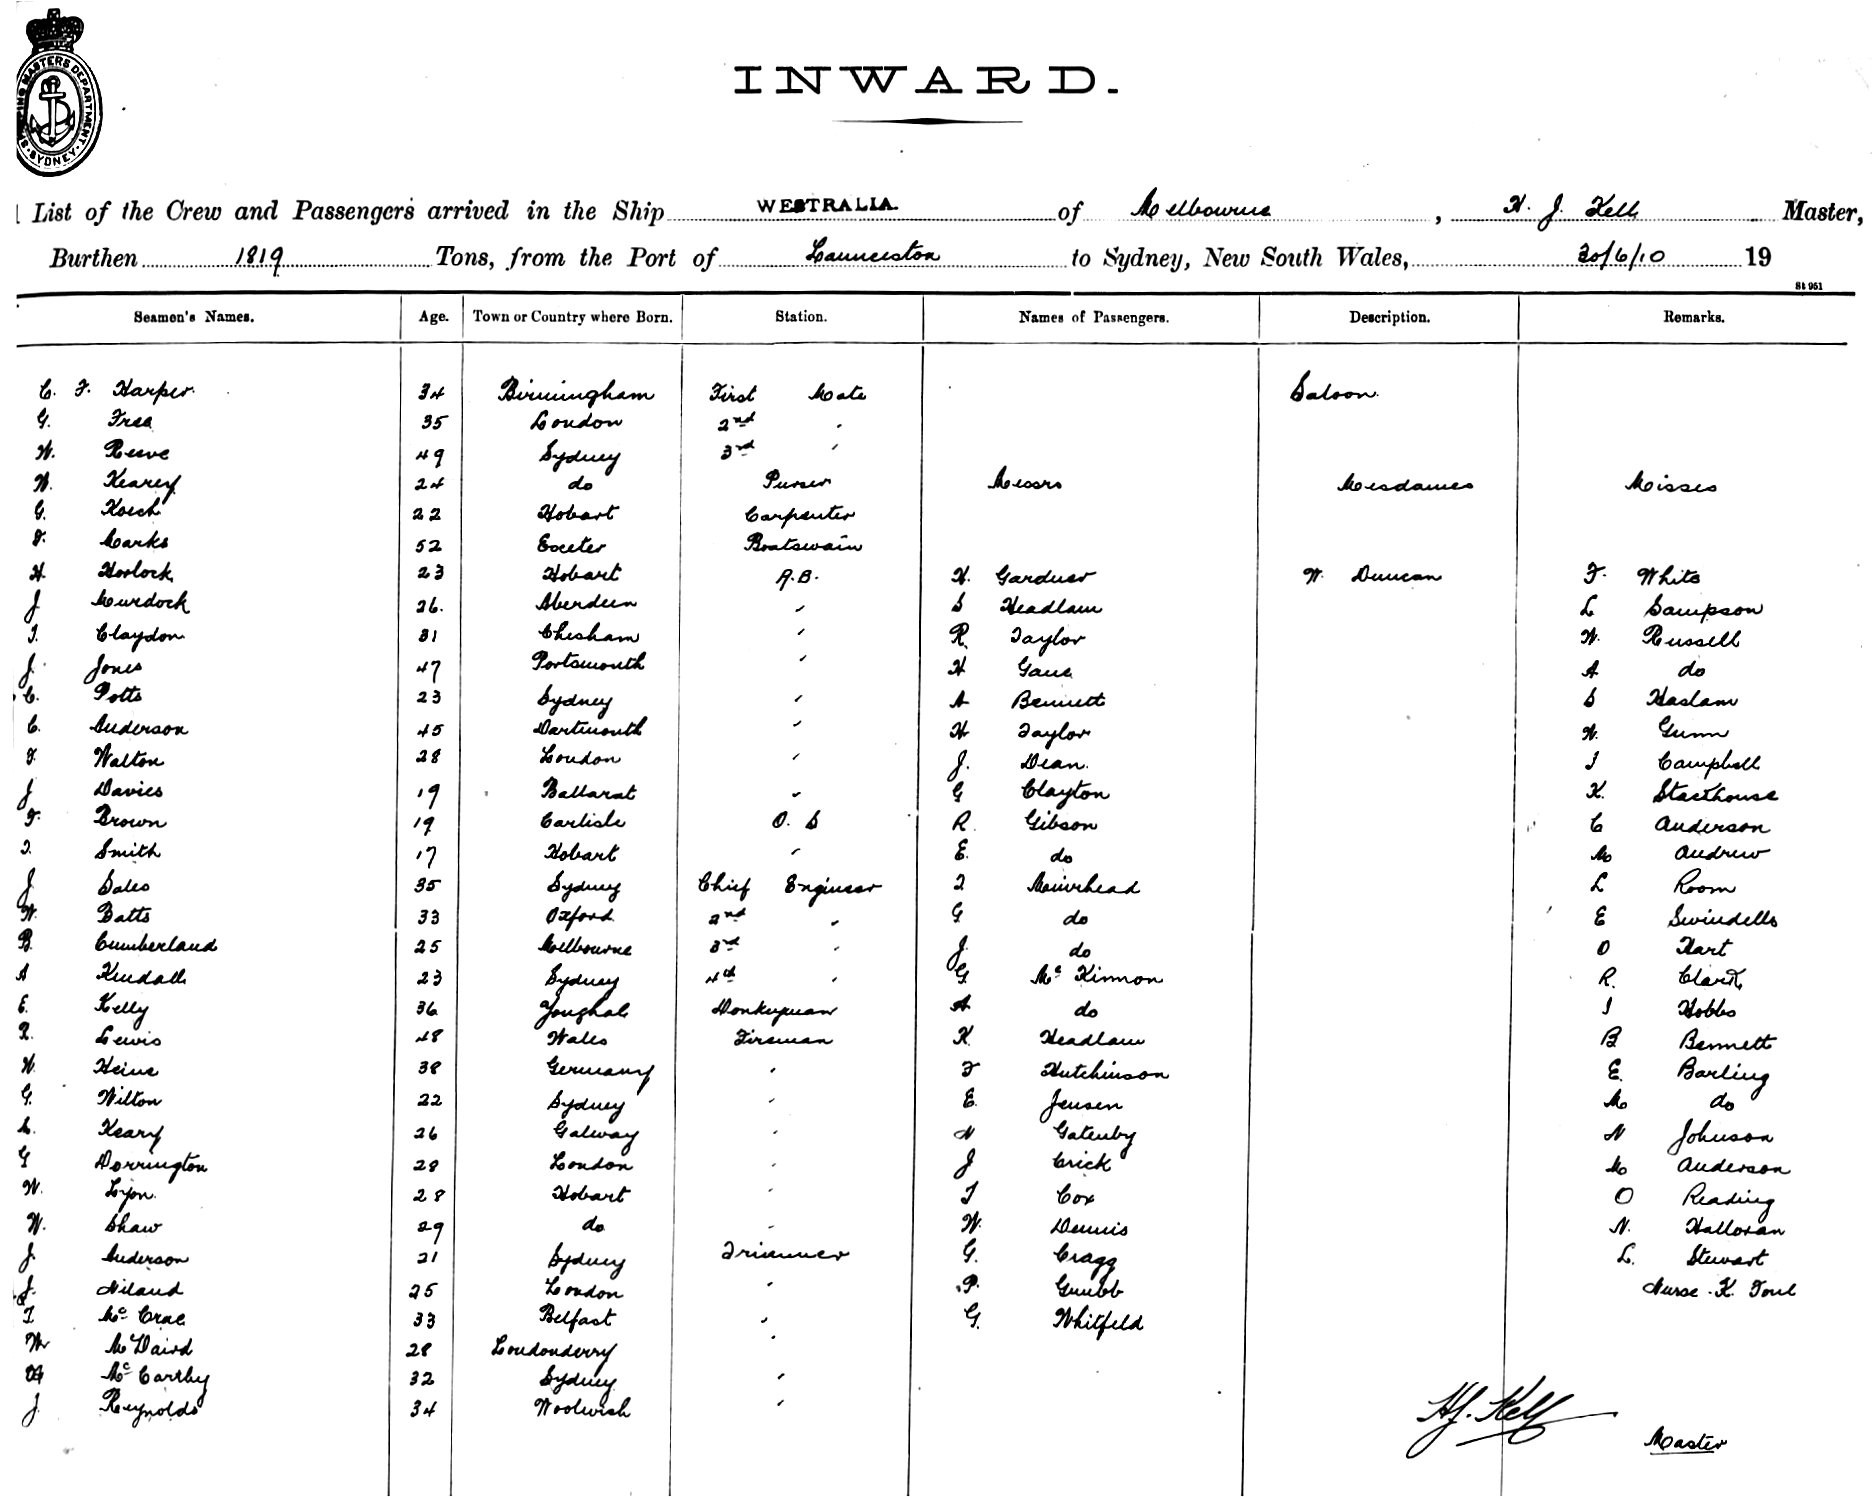 SHIPPING MASTERS DEPARTMENT. SYDNEY.
INWARD.
List of the Crew and Passengers arrived in the Ship WESTRALIA. of Melbourne, H. J. Kell Master,
Burthen 1819 Tons, from the Port of Launceston to Sydney, New South Wales, 20/6/10 19
St 951
Seamen's Names. Age. Town or Country where Born. Station. Names of Passengers. Description. Remarks.
C. F. Harper. 34 Birmingham First Mate Saloon.
G. Free 35 London 2nd "
W. Reeve 49 Sydney 3rd "
W. Kearey 24 do Purser Messrs Mesdames Misses
G. Koech 22 Hobart Carpenter
F. Marks 52 Exeter Boatswain
H. Horlock 23 Hobart A.B. H. Gardner W. Duncan F. White
J Murdock 26. Aberdeen " S Headlam L Sampson
T. Claydon 31 Chesham " R. Taylor W. Russell
J. Jones 47 Portsmouth " H Gaue A do
C. Potts 23 Sydney " A Bennett S Haslam
C. Anderson 45 Dartmouth " H Taylor W. Gunn
F. Walton 28 London " J. Dean. I Campbell
J Davies 19 Ballarat " G Clayton K. Stackhouse
F. Brown 19 Carlisle O. S R. Gibson C Anderson
T. Smith 17 Hobart " E. do M Andrew
J. Sales 35 Sydney Chief Engineer T Muirhead L Room
W. Batts 33 Oxford 2nd " G do E Swindells
B. Cumberland 25 Melbourne 3rd " J. do O Hart
A Kendall 23 Sydney 4th " G. McKinnon R. Clark
E. Kelly 36 Youghal Donkeyman A do I Hobbs
R. Lewis 48 Wales Fireman K. Headlam B Bennett
W. Heine 38 Germany " F Hutchinson E. Barling
G. Wilton 22 Sydney " E. Jensen M do
M. Keary 26 Galway " N Gatenby N Johnson
G Dorrington 28 London " J Crick M Anderson
W. Lyon. 28 Hobart " T Cox O Reading
W. Shaw 29 do " W. Dennis N. Halloran
J Anderson 21 Sydney Trimmer G. Cragg L. Stewart
J. Niland 25 London " P. Grubb Nurse K. Foul
T. McCrae 33 Belfast " G. Whitfeld
W McDaird 28 Londonderry "
McCarthy 32 Sydney "
J. Reynolds 34 Woolwich "
H. J. Kell
Master